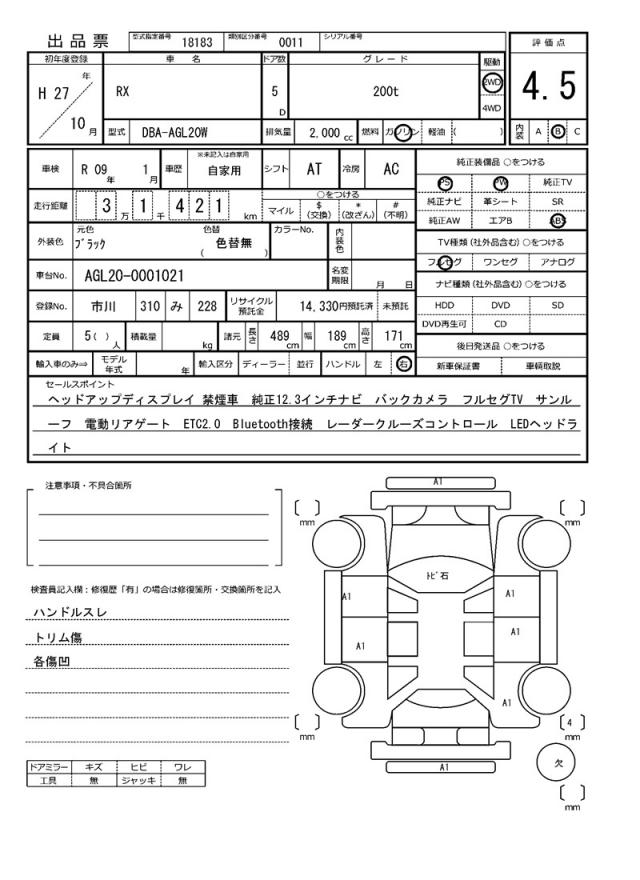 出品票 型式指定番号 18183 類別区分番号 0011 シリアル番号
初年度登録 車名 ドア数 グレード 駆動 評価点
H 27 年 10 月 RX 5 D 200t 2WD 4WD 4.5
型式 DBA-AGL20W 排気量 2,000 cc 燃料 ガソリン 軽油 ( ) 内装 A B C
車検 R 09 年 1 月 車歴 ※未記入は自家用 自家用 シフト AT 冷房 AC
走行距離 3 万 1 千 4 2 1 km ○をつける マイル $ (交換) * (改ざん) # (不明)
外装色 元色 ブラック 色替 色替無 ( ) カラーNo. 内装色
車台No. AGL20-0001021 名変期限 月 日
登録No. 市川 310 み 228 リサイクル預託金 14,330円預託済 未預託
定員 5( ) 人 積載量 kg 諸元 長さ 489 cm 幅 189 cm 高さ 171 cm
輸入車のみ⇒ モデル年式 年 輸入区分 ディーラー 並行 ハンドル 左 右
純正装備品 ○をつける
PS PW 純正TV
純正ナビ 革シート SR
純正AW エアB ABS
TV種類 (社外品含む) ○をつける
フルセグ ワンセグ アナログ
ナビ種類 (社外品含む) ○をつける
HDD DVD SD
DVD再生可 CD
後日発送品 ○をつける
新車保証書 車輌取説
セールスポイント
ヘッドアップディスプレイ 禁煙車 純正12.3インチナビ バックカメラ フルセグTV サンル
ーフ 電動リアゲート ETC2.0 Bluetooth接続 レーダークルーズコントロール LEDヘッドラ
イト
注意事項・不具合箇所
検査員記入欄：修復歴「有」の場合は修復箇所・交換箇所を記入
ハンドルスレ
トリム傷
各傷凹
ドアミラー キズ ヒビ ワレ
工具 無 ジャッキ 無
A1
[ ] mm [ ] mm
トビ石
A1 A1
A1 A1
A1
[ ] mm [ 4 ] mm
A1
欠
[ ] mm